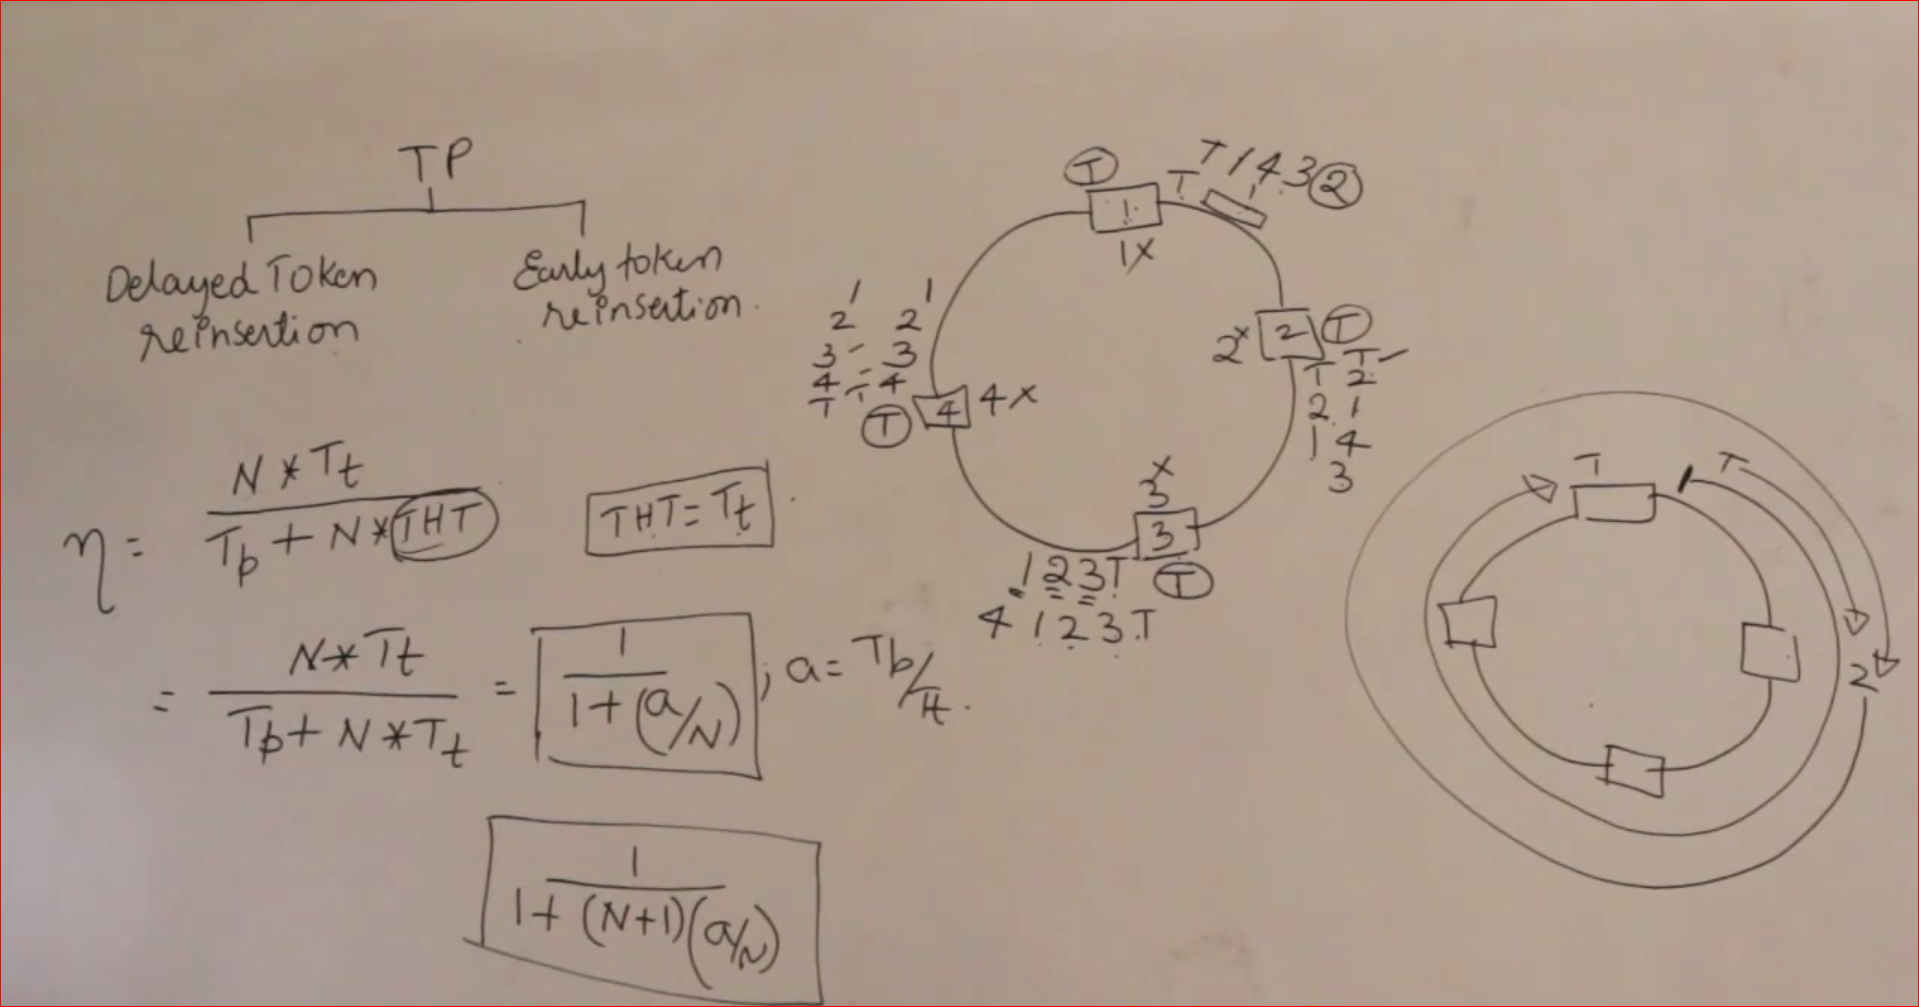 TP
Delayed Token
reinsertion
Early token
reinsertion.
η = N * Tt / Tp + N * THT
THT = Tt
= N * Tt / Tp + N * Tt = 1 / 1 + (a/N) ; a = Tp/Tt.
1 / 1 + (N+1)(a/N)
T
T
T 1 4 3 2
1
1
1 X
2 x
2
T
T T
2 2
1 1
4
3
x
3
3
T
1 2 3 T
4 1 2 3 T
1 1
2 2
3 - 3
4 - 4
T T
T
4
4 X
T
T
2